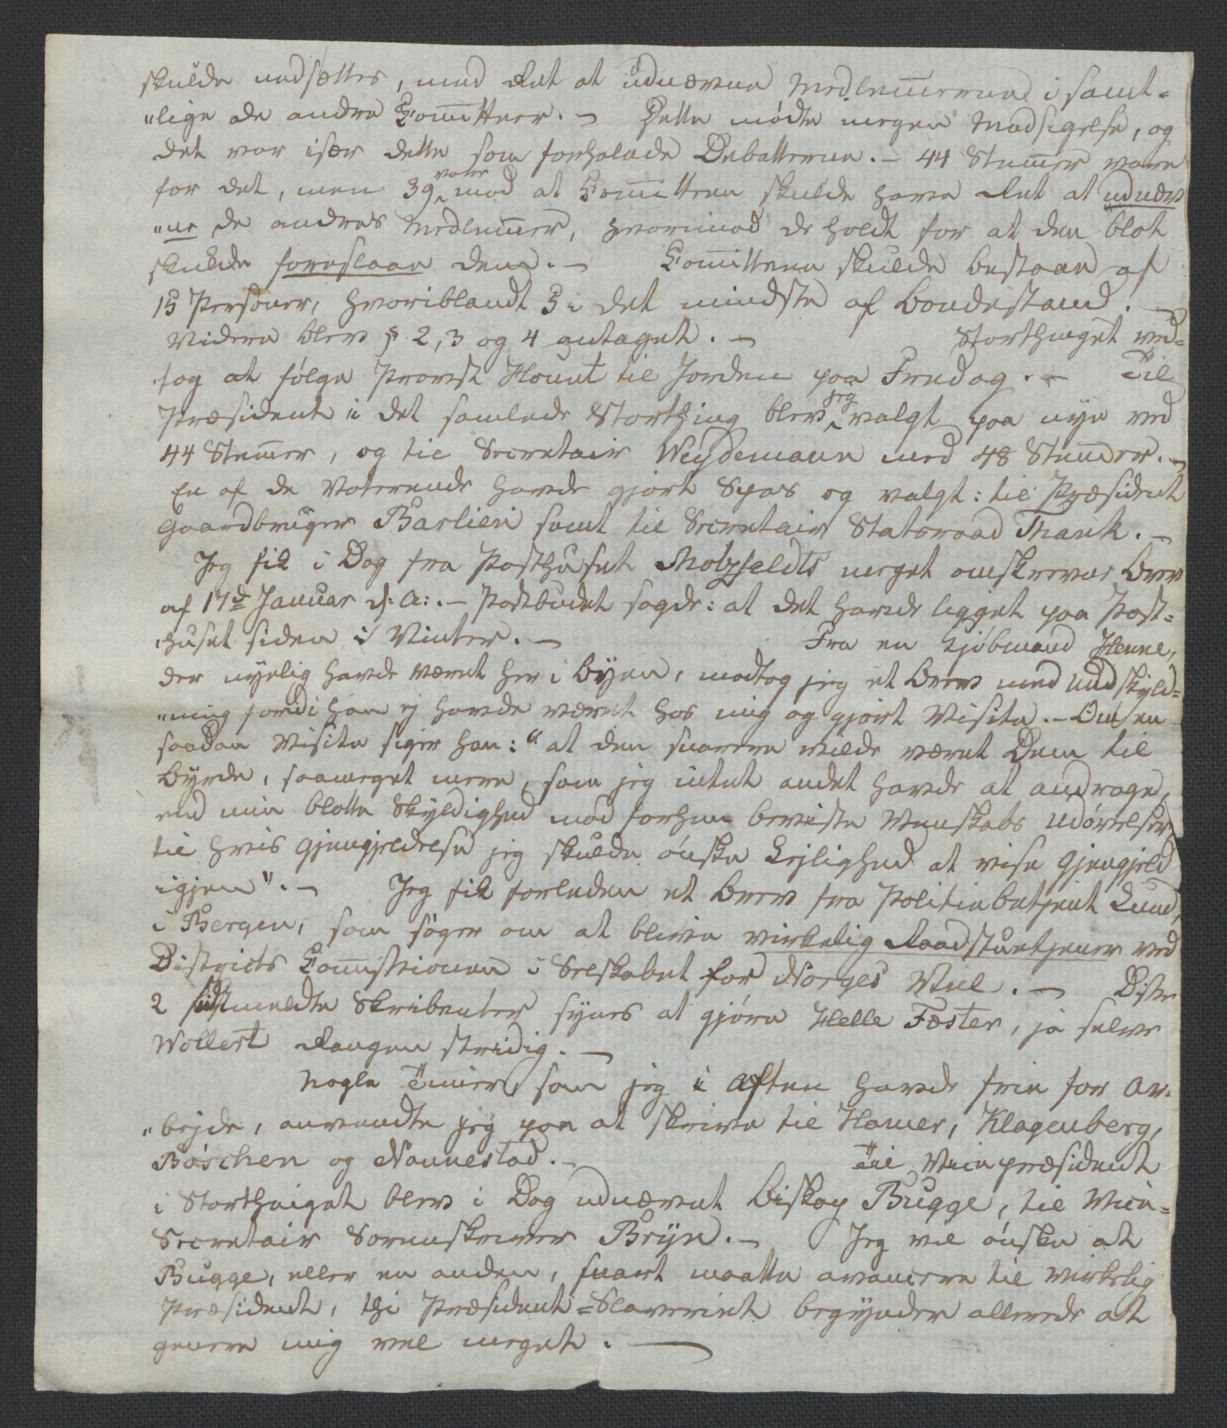 skulde nedsættes, med Ret at udnævne Medlem̅erne i samt=
"lige de andre Com̅itteer. – Dette mødte megen Modsigelse, og
det var især dette som forhalede Debatterne. – 44 Stem̅er vare
for det, men 39 vare mod at Com̅itteen skulde have Ret at udnæv
"ne de andres Medlem̅er, hvorimod de holdt for at den blot
skulde foreslaae dem. – Com̅itteen skulde bestaae af
15 Personer, hvoriblandt 3 i det mindste af Bondestand. –
Videre blev § 2, 3 og 4 antaget. – Storthinget ved=
tog at følge Provst Hount til Jorden paa Fredag. – Til
Præsident i det samlede Storthing blev jeg valgt paa nye ved
44 Stem̅er, og til Secretair Weydemann med 48 Stem̅er. –
En af de Voterende havde gjort Spas og valgt: til Præsident
Gaardbruger Barlien samt til Secretair Statsraad Thank. –
Jeg fik i Dag fra Posthuset Motzfeldts meget omskrevne Brev
af 17de Januar d: A:. – Postbudet sagde: at det havde ligget paa Post=
huset siden i Vinter. – Fra en Kjøbmand Henne,
der nyelig havde været her i Byen, modtog jeg et Brev med Undskyld=
"ning fordi han ej havde været hos mig og gjort Visite. – Om en
saadan Visite siger han: "at den snarere vilde været Dem til
Byrde, saameget mere, som jeg intet andet havde at andrage,
end min blotte Skyldighed mod forhen beviste Venskabs Udøvelser
til hvis Gjengjeldelse jeg skulde ønske Lejlighed at vise Gjengjeld
igjen". – Jeg fik forleden et Brev fra Politiebetjent Lund,
i Bergen, som søger om at blive virkelig Raadstuetjener ved
Districts Com̅issionen i Selskabet for Norges Vel. – Disse
2 sidstmeldte Skribenter synes at gjøre Helle Fæster, ja selve
Wollert Rangen stridig. –
Nogle Timer, som jeg i Aften havde frie for Ar=
"bejde, anvendte jeg paa at skrive til Hamer, Klagenberg,
Bøschen og Nannestad. – Til Vicepræsident
i Storthinget blev i Dag udnævnt Biskop Bugge, til Vice=
Secretair Sorenskriver Bryn. – Jeg vil ønske at
Bugge, eller en anden, snart maatte avancere til virkelig
Præsident, thi Præsident=Slaveriet begynder allerede at
genere mig vel meget. –